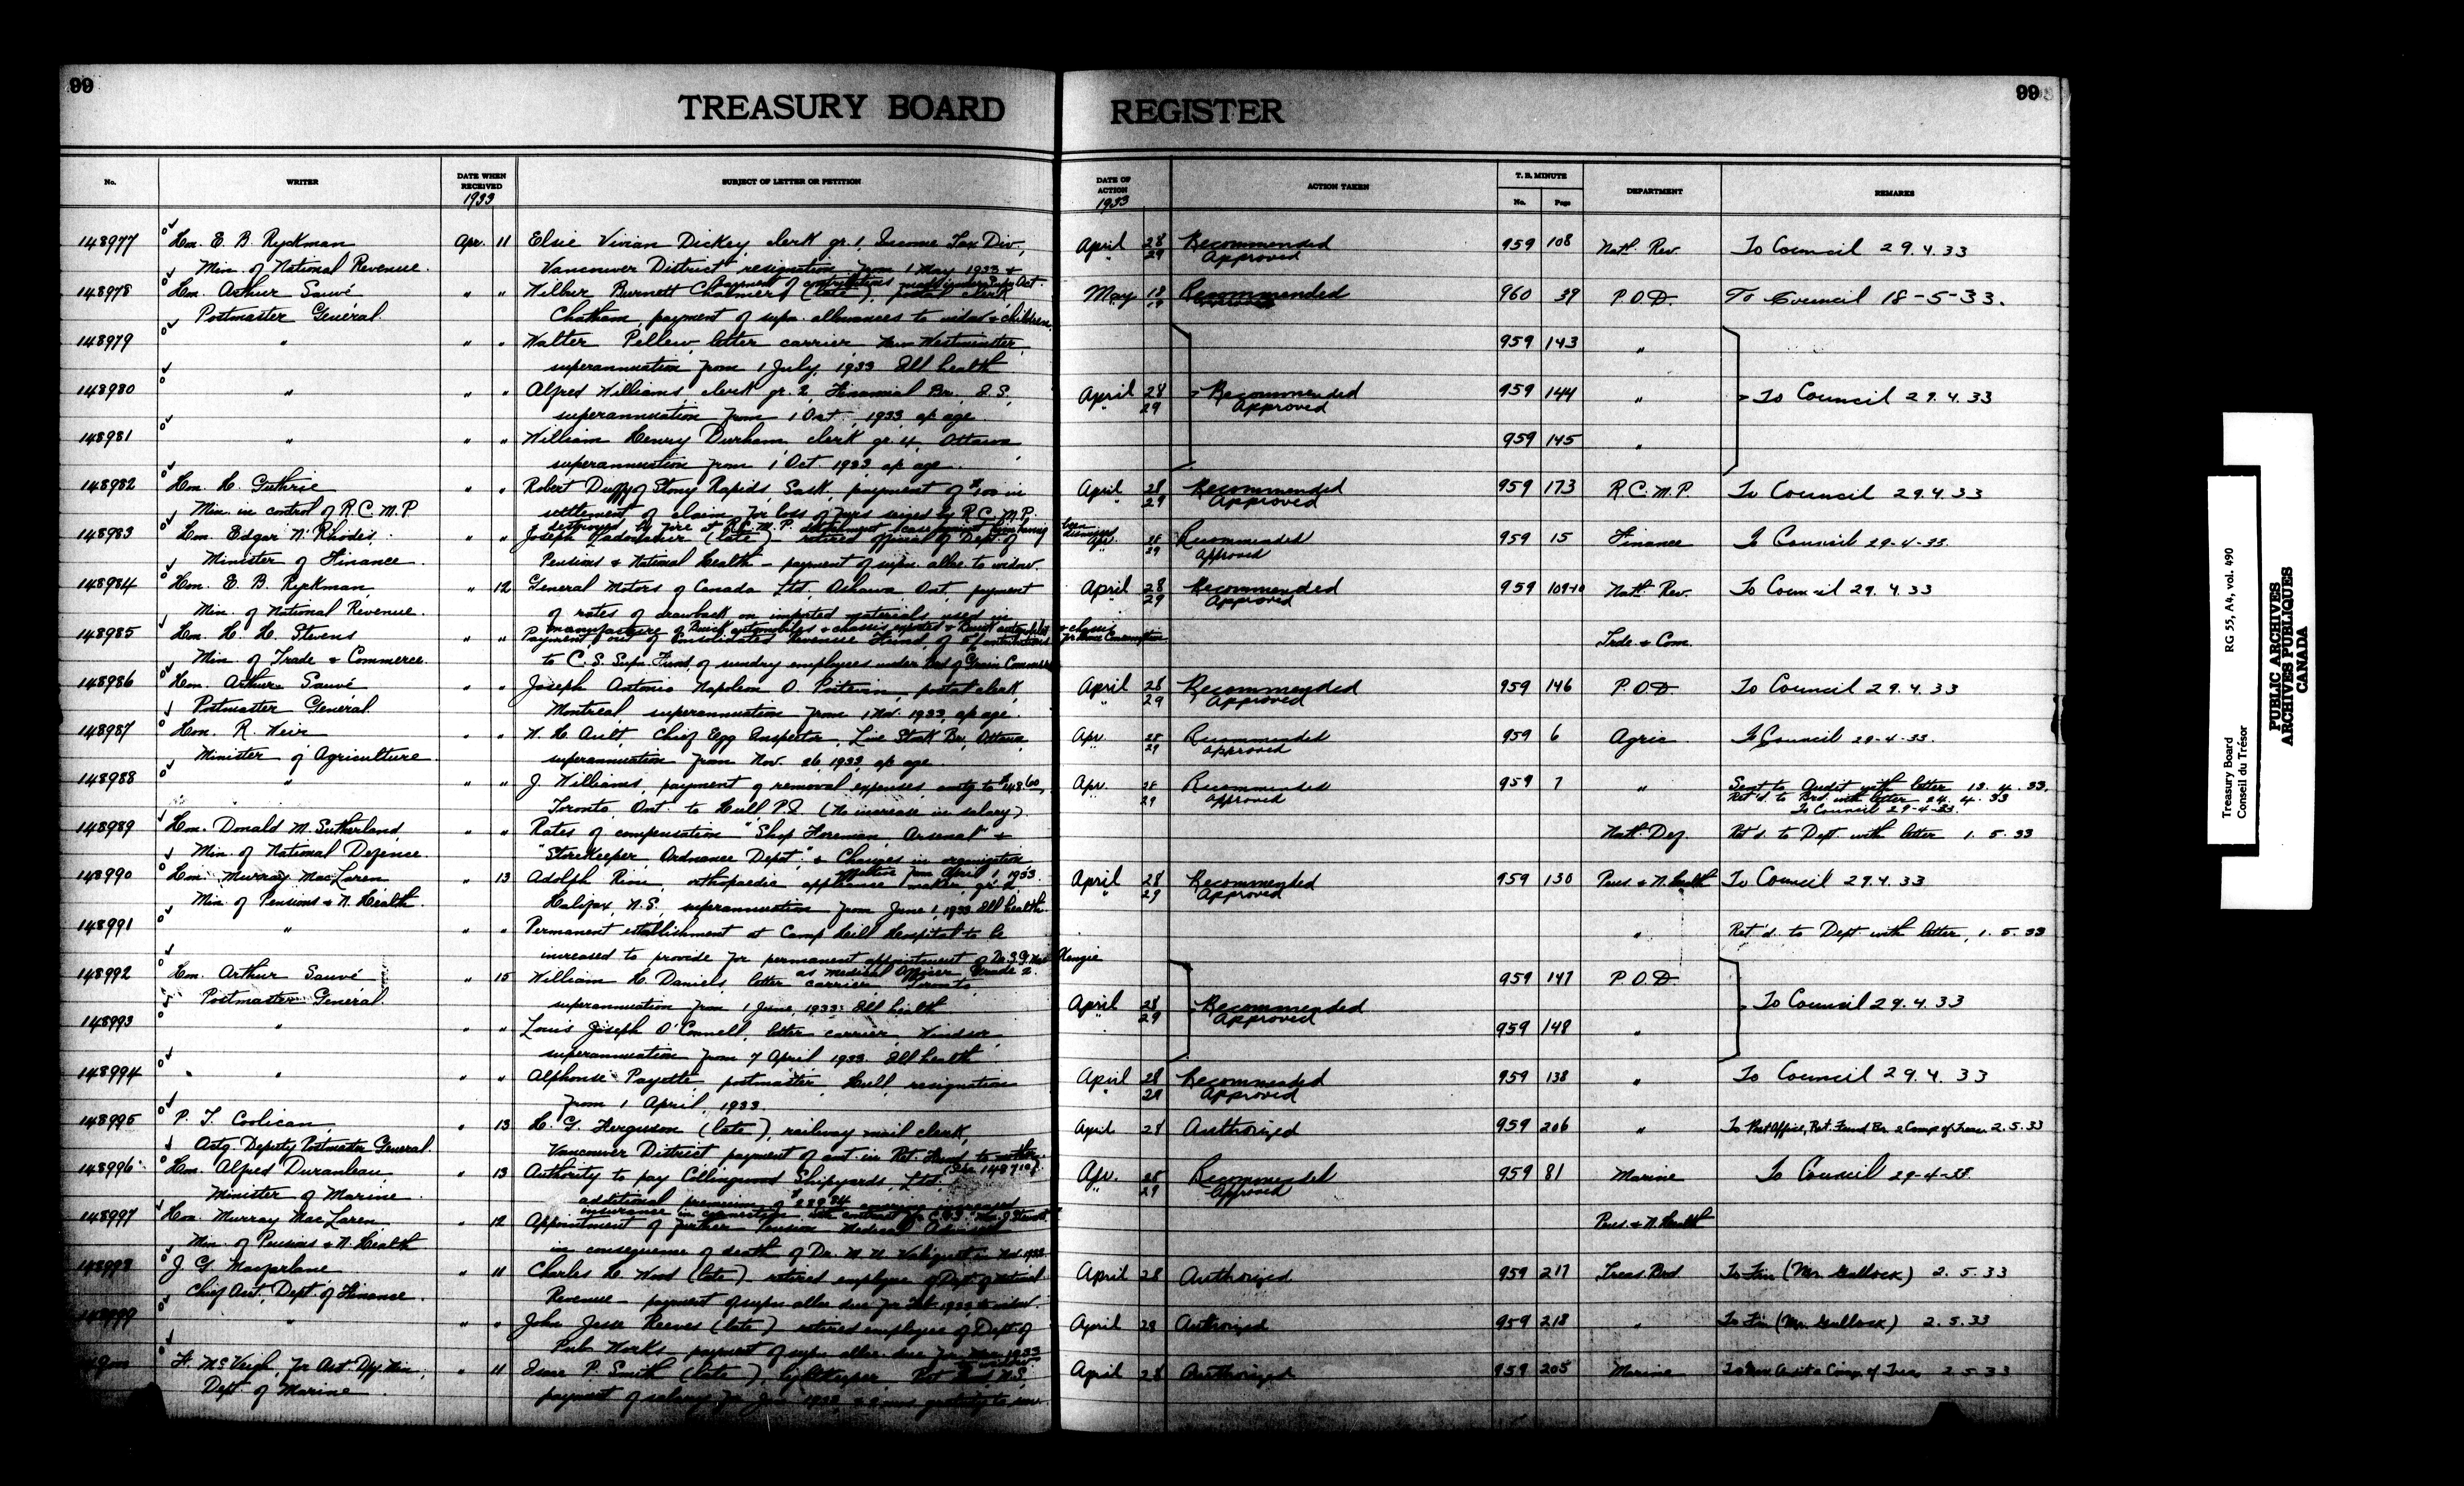 99
TREASURY BOARD REGISTER
99
No. WRITER DATE WHEN RECEIVED 1933 SUBJECT OF LETTER OR PETITION DATE OF ACTION 1933 ACTION TAKEN T. B. MINUTE No. Page DEPARTMENT REMARKS
148977 Hon. E. B. Ryckman Apr. 11 Elsie Vivian Dickey, clerk gr. 1, Income Tax Div., April 28 Recommended 959 108 Nat'l. Rev. To Council 29.4.33
Min. of National Revenue. Vancouver District resignation from 1 May 1933 & " 29 Approved
payment of contributions made under Supn Act.
148978 Hon. Arthur Sauvé " " Wilber Burnett Chalmers (late), postal clerk, May 18 Recommended 960 39 P.O.D. To Council 18-5-33.
Postmaster General. Chatham, payment of supn. allowances to widow & children.
148979 " " " Walter Pellew, letter carrier New Westminster, 959 143 "
superannuation from 1 July, 1933 Ill health
148980 " " " Alfred Williams, clerk gr. 2, Financial Br., I.S., April 28 Recommended 959 144 " To Council 29.4.33
superannuation from 1 Oct., 1933, ap age. " 29 Approved
148981 " " " William Henry Durham, clerk gr. 4, Ottawa 959 145 "
superannuation from 1 Oct. 1933 ap age.
148982 Hon. H. Guthrie " " Robert Duffy of Stony Rapids, Sask., payment of $100 in April 28 Recommended 959 173 R.C.M.P. To Council 29.4.33
Min. in control of R.C.M.P. settlement of claim for loss of furs seized by R.C.M.P. 29 Approved
destroyed by fire at R.C.M.P. detachment (case against him having been dismissed
148983 Hon. Edgar N. Rhodes, " " Joseph Ladouceur (late) retired official of Dept. of Apr. 28 Recommended 959 15 Finance To Council 29-4-33.
Minister of Finance. Pensions & National Health - payment of supn. allce. to widow. " 29 Approved
148984 Hon. E. B. Ryckman, " 12 General Motors of Canada Ltd., Oshawa, Ont., payment April 28 Recommended 959 109-10 Nat'l. Rev. To Council 29.4.33
Min. of National Revenue. of rates of drawback on imported materials used in " 29 Approved
manufacture of Buick automobiles & chassis exported & Buick automobiles & chassis for Home Consumption
148985 Hon. H. H. Stevens " " Payment out of Consolidated Revenue Fund, of 5% contributions Trde & Com.
Min. of Trade & Commerce. to C.S. Supn. Fund, of sundry employees under Brd of Grain Commrs
148986 Hon. Arthur Sauvé " " Joseph Antonio Napoleon O. Poitevin, postal clerk, April 28 Recommended 959 146 P.O.D. To Council 29.4.33
Postmaster General. Montreal, superannuation from 1 Nov. 1933, ap age. " 29 Approved
148987 Hon. R. Weir " " W. H. Ault, Chief Egg Inspector, Live Stock Br., Ottawa Apr. 28 Recommended 959 6 Agric. To Council 29-4-33.
Minister of Agriculture. superannuation from Nov. 26, 1933, ap age. " 29 Approved
148988 " " " J. Williams, payment of removal expenses amtg to $148.60, Apr. 28 Recommended 959 7 " Sent to Audit with letter 13.4.33.
Toronto, Ont. to Hull, P.Q. (No increase in salary). 29 Approved Ret'd. to Brd. with letter 24.4.33
To Council 29-4-33.
148989 Hon. Donald M. Sutherland, " " Rates of compensation "Shop Foreman, Arsenal" & Nat'l. Def. Ret'd. to Dept. with letter 1.5.33
Min. of National Defence. "StoreKeeper, Ordnance Depot" & Changes in organization
effective from April 1, 1933.
148990 Hon. Murray MacLaren " 13 Adolph Rion, orthopaedic appliance maker, gr. 2, April 28 Recommended 959 130 Pens. & N. Health To Council 29.4.33
Min. of Pensions & N. Health. Halifax, N.S., superannuation from June 1, 1933 Ill health " 29 Approved
148991 " " " Permanent establishment at Camp Hill Hospital to be " Ret'd. to Dept. with letter, 1.5.33
increased to provide for permanent appointment of Dr. S.G. MacKenzie
as medical Officer, Grade 2.
148992 Hon. Arthur Sauvé " 15 William H. Daniels, letter carrier Toronto, 959 147 P.O.D.
Postmaster General. superannuation from 1 June, 1933. Ill health April 28 Recommended To Council 29.4.33
148993 " " " Louis Joseph O'Connell, letter carrier, Windsor, " 29 Approved 959 148 "
superannuation from 7 April 1933. Ill health
148994 " " " " Alphonse Payette, postmaster, Hull, resignation April 28 Recommended 959 138 " To Council 29.4.33
from 1 April, 1933. " 29 Approved
148995 P. T. Coolican, " 13 H. G. Ferguson (late), railway mail clerk, April 28 Authorized 959 206 " To Post Office, Ret. Fund Br. & Comp. of Treas. 2.5.33
Actg. Deputy Postmaster General. Vancouver District payment of amt. in Ret. Fund to mother.
148996 Hon. Alfred Duranleau, " 13 Authority to pay Collingwood Shipyards, Ltd. Apr. 28 Recommended 959 81 Marine To Council 29-4-33.
Minister of Marine. additional premium of " 29 Approved
insurance in connection with contract
148997 Hon. Murray MacLaren, " 12 Appointment of further Pension Medical Advisers Pens. & N. Health
Min. of Pensions & N. Health in consequence of death of Dr. in Nov. 1932
148998 J. G. Macfarlane " 11 Charles H. Wood (late) retired employee of Dept. of National April 28 Authorized 959 217 Treas. Brd. To Fin (Mr. Gullock) 2.5.33
Chief Acct., Dept. of Finance. Revenue - payment of supn. allce. due for Feb. 1933 to widow.
148999 " " " John Jesse Reeves (late) retired employee of Dept. of April 28 Authorized 959 218 " To Fin (Mr. Gullock) 2.5.33
Pub. Works - payment of supn. allce. due for Mar. 1933
to widow
F. McVeigh, for Act Dy. Min., " 11 P. Smith (late), lightkeeper, Port N.S. April 28 Authorized 959 205 Marine 2.5.33
Dept. of Marine payment of salary for
Treasury Board
Conseil du Trésor
RG 55, A4, vol. 490
PUBLIC ARCHIVES
ARCHIVES PUBLIQUES
CANADA